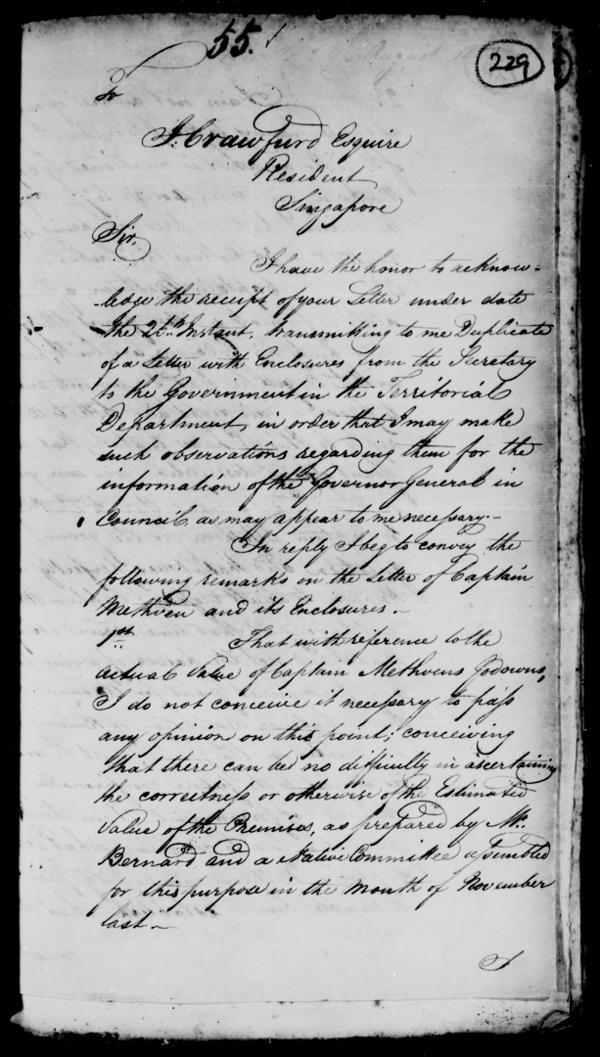 55.
229
To
J. Crawfurd Esquire
Resident
Singapore
Sir,
I have the honor to acknow-
-ledge the receipt of your Letter under date
the Instant, transmitting to me Duplicate
of a Letter with Enclosures from the Secretary
to the Government in the Territorial
Department, in order that I may make
such observations regarding them for the
information of the Governor General in
Council, as may appear to me necessary.-
In reply I beg to convey the
following remarks on the Letter of Captain
Methven and its Enclosures.-
1st
That with reference to the
actual Value of Captain Methvens Godowns,
I do not conceive it necessary to pass
any opinion on this point; conceiving
that there can be no difficulty in ascertaining
the correctness or otherwise of the Estimated
Value of the Premises, as prepared by Mr.
Bernard and a Native Committee assembled
for this purpose in the Month of November
last-